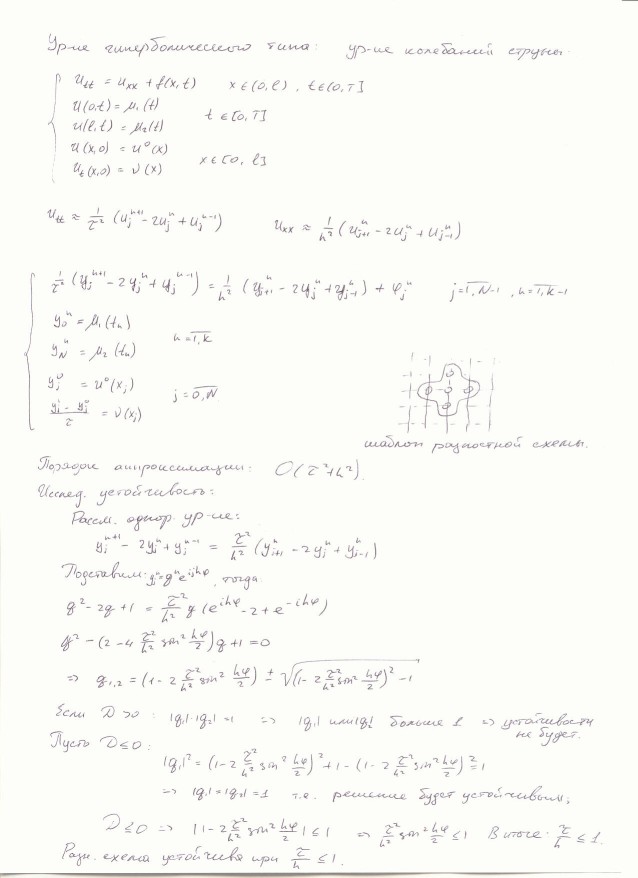 Ур-ие гиперболического типа: ур-ие колебаний струны.
u_tt = u_xx + f(x,t) x ∈ (0, l), t ∈ (0, T]
u(0,t) = μ₁(t)
t ∈ [0, T]
u(l,t) = μ₂(t)
u(x,0) = u⁰(x)
x ∈ [0, l]
u_t(x,0) = ν(x)
u_tt ≈ 1/τ² (u_j^{n+1} - 2u_j^n + u_j^{n-1}) u_xx ≈ 1/h² (u_{j+1}^n - 2u_j^n + u_{j-1}^n)
1/τ² (y_j^{n+1} - 2y_j^n + y_j^{n-1}) = 1/h² (y_{j+1}^n - 2y_j^n + y_{j-1}^n) + φ_j^n j = \overline{1, N-1}, n = \overline{1, K-1}
y_0^n = μ₁(t_n)
n = \overline{1, K}
y_N^n = μ₂(t_n)
y_j^0 = u⁰(x_j)
j = \overline{0, N}
(y_j^1 - y_j^0)/τ = ν(x_j)
шаблон разностной схемы.
Порядок аппроксимации: O(τ² + h²).
Исслед. устойчивость:
Рассм. однор. ур-ие:
y_j^{n+1} - 2y_j^n + y_j^{n-1} = τ²/h² (y_{j+1}^n - 2y_j^n + y_{j-1}^n)
Подставим: y_j^n = q^n e^{ijhφ}, тогда
q² - 2q + 1 = τ²/h² q (e^{ihφ} - 2 + e^{-ihφ})
q² - (2 - 4 τ²/h² sin² hφ/2) q + 1 = 0
⇒ q_{1,2} = (1 - 2 τ²/h² sin² hφ/2) ± √((1 - 2 τ²/h² sin² hφ/2)² - 1)
Если D > 0: |q₁·q₂| = 1 ⇒ |q₁| или |q₂| больше 1 ⇒ устойчивости
не будет.
Пусть D ≤ 0:
|q₁|² = (1 - 2 τ²/h² sin² hφ/2)² + 1 - (1 - 2 τ²/h² sin² hφ/2)² = 1
⇒ |q₁| = |q₂| = 1 т.е. решение будет устойчивым;
D ≤ 0 ⇒ |1 - 2 τ²/h² sin² hφ/2| ≤ 1 ⇒ τ²/h² sin² hφ/2 ≤ 1 В итоге: τ/h ≤ 1.
Разн. схема устойчива при τ/h ≤ 1.